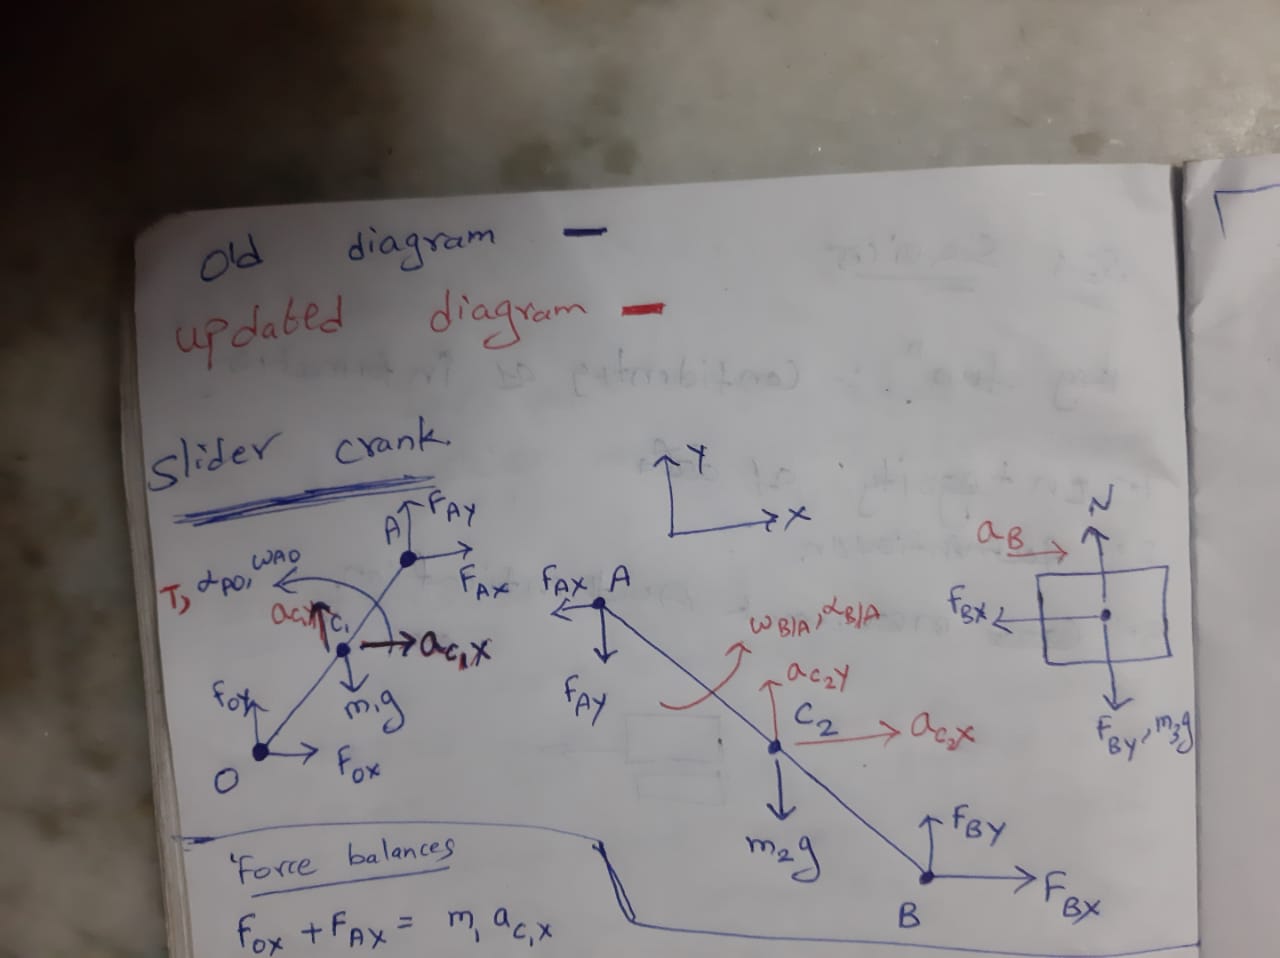 Old diagram —
updated diagram —
Slider crank.
Y
X
A
FAY
FAX
T, αAO, ωAO
aC1Y
C1
aC1X
m1g
FOY
FOX
O
FAX A
FAY
ωB/A, αB/A
aC2Y
C2
aC2X
m2g
FBY
FBX
B
aB
N
FBX
FBY, m3g
Force balances
FOX + FAX = m1 aC1X